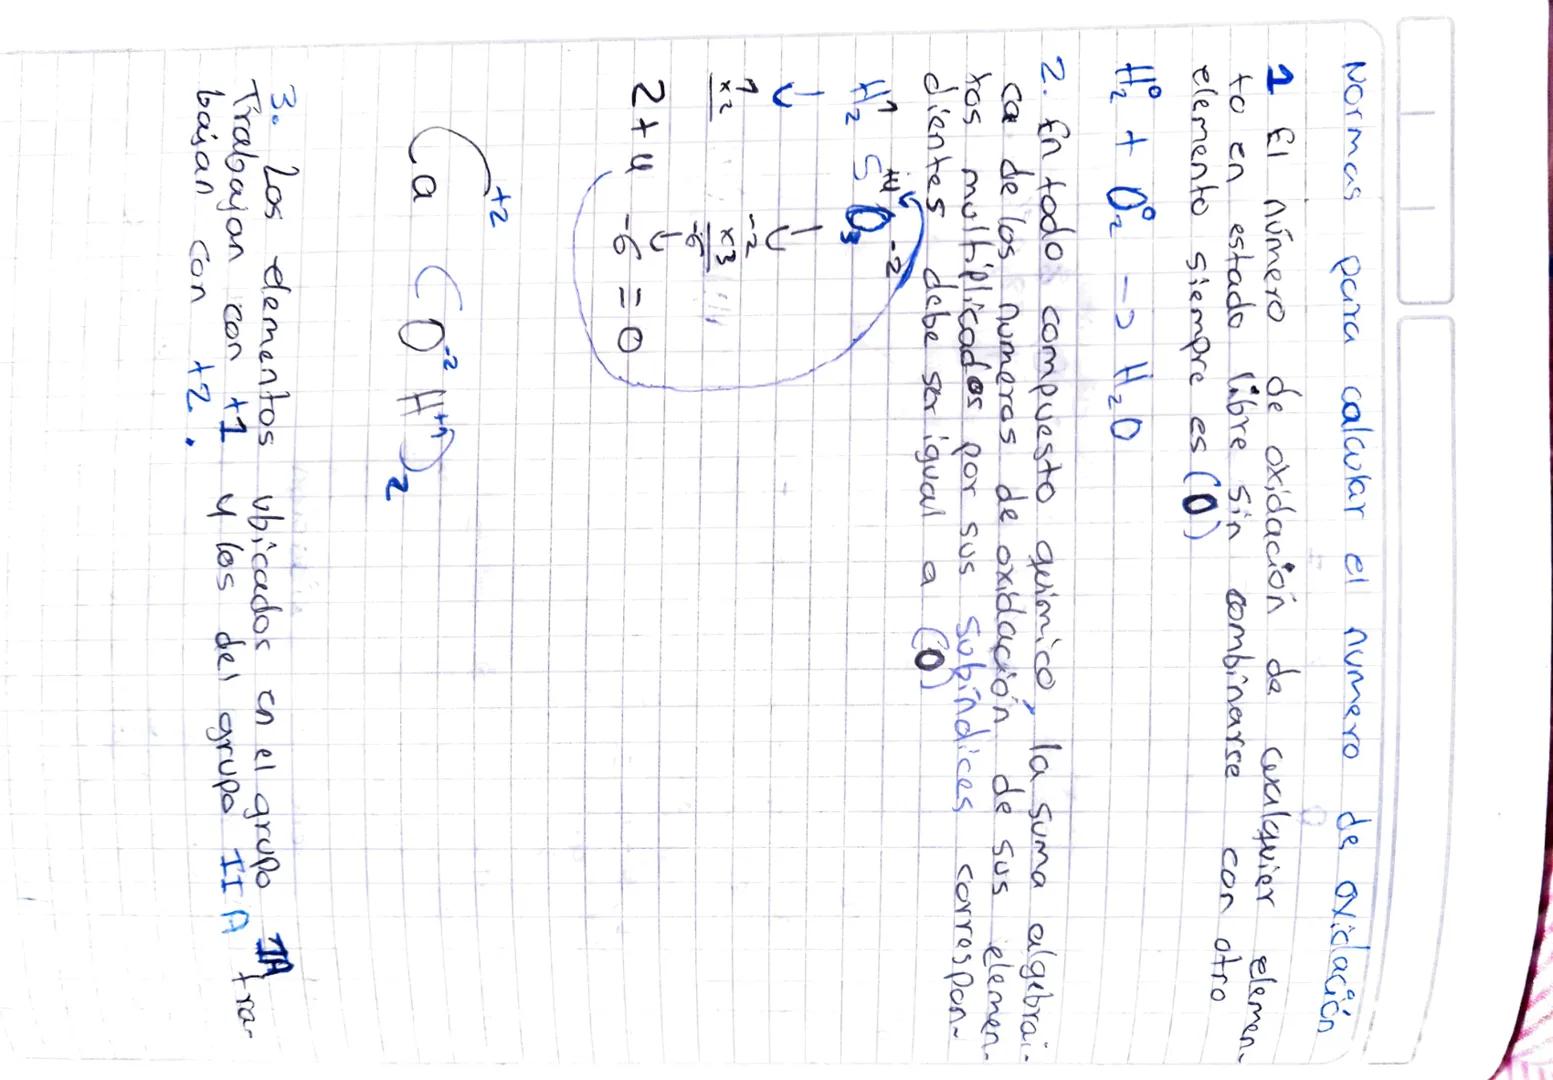 Normas para calcular el numero de oxidación
1 El número de oxidación de cualquier elemen-
to en estado libre sin combinarse con otro
elemento siempre es (0)
H₂⁰ + O₂⁰ -> H₂O
2. En todo compuesto químico, la suma algebrai-
ca de los numeros de oxidación de sus elemen-
tos multiplicados por sus subíndices correspon-
dientes debe ser igual a (0)
H₂¹ S⁺⁴ O₃⁻²
↓ ↓
1 -2
x2 x3
-6
↓
2+4 -6 = 0
Ca⁺² (O⁻² H⁺¹)₂
3. Los elementos ubicados en el grupo IA
Trabajan con +1 y los del grupo II A tra-
bajan con +2.